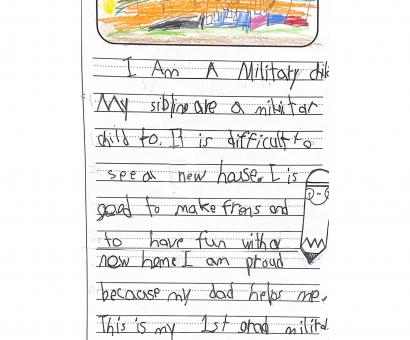 I Am A Military chile
My sibling are a militar
child to. It is difficult to
see a new house. I is
good to make frens and
to have fun with a
new home I am proud
because my dad helps me.
This is my 1st grad militd